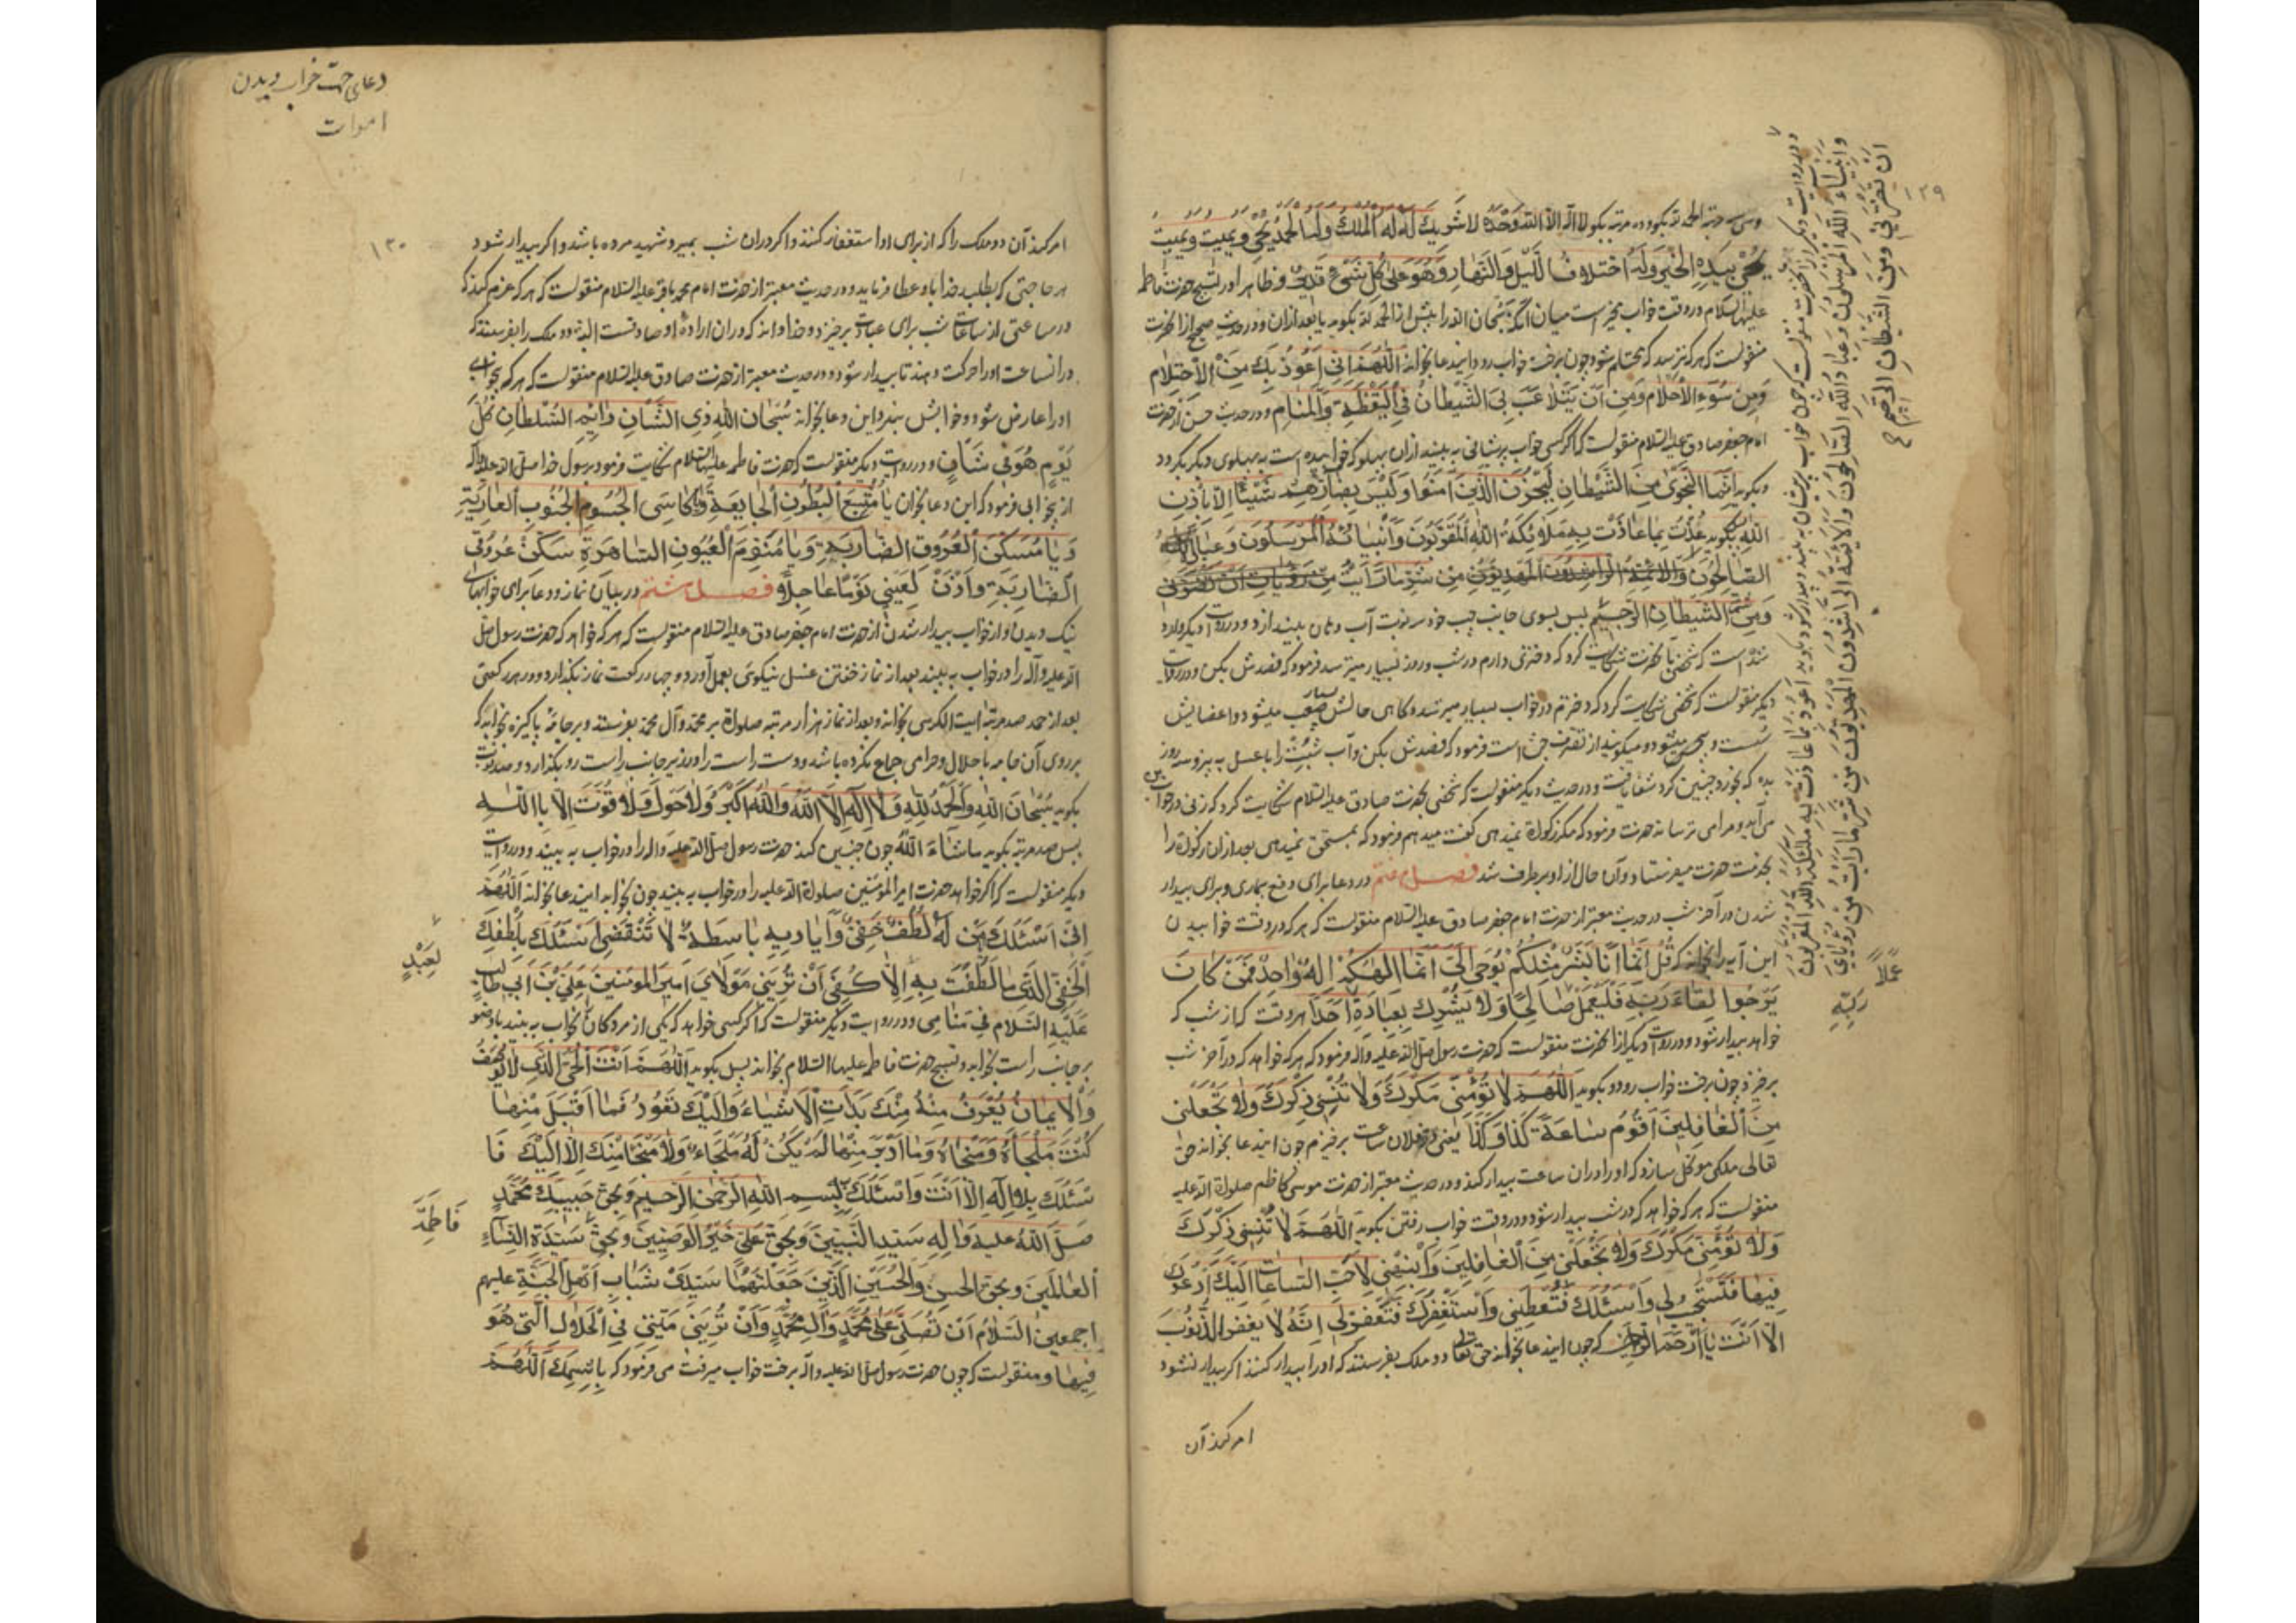 ۱۲۹
وسی سه مرتبه الحمد لله بگوید و ده مرتبه بگوید لا اله الا الله وحده لا شریك له له الملك وله الحمد یحیی ویمیت ویمیت
یحیی بیده الخیر وله اختلاف اللیل والنهار وهو علی کل شیء قدیر و ظاهرا در تسبیح حضرت فاطمه
علیها السلام در وقت خواب مخیر است میان آنکه سبحان الله را پیش از الحمد لله بگوید یا بعد از آن و در حدیث صحیح از آنحضرت
منقولست که هر که ترسد که محتلم شود چون برخت خواب رود این دعا بخواند اللهم انی اعوذ بك من الاحتلام
ومن سوء الاحلام ومن ان یتلاعب بی الشیطان فی الیقظة والمنام و در حدیث حسن از حضرت
امام جعفر صادق علیه السلام منقولست که اگر کسی خواب پریشانی به بیند از آن پهلو که خوابیده است به پهلوی دیگر بگردد
وبگوید انما النجوی من الشیطان لیحزن الذین امنوا ولیس بضارهم شیئا الا باذن
الله پس بگوید عذت بما عاذت به ملائکة الله المقربون وانبیائه المرسلون وعباد الله
الصالحون والائمة الراشدون المهدیون من شر ما رایت من رؤیای ان تضرنی
ومن الشیطان الرجیم پس بسوی جانب چپ خود سه نوبت آب دهان بیندازد و در روایت دیگر وارد
شده است که شخصی بآنحضرت شکایت کرد که دختری دارم در شب و روز بسیار میترسد فرمود که فصدش بکن و در روایت
دیگر منقولست که شخصی شکایت کرد که دخترم در خواب بسیار میترسد و گاهی حالش بسیار صعب میشود و اعضایش
سست و بیحس میشود و میگویند از تصرف جن است فرمود که فصدش بکن و آب شبت را با عسل به پز و سه روز
بده که بخورد چنین کرد شفا یافت و در حدیث دیگر منقولست که شخصی بحضرت صادق علیه السلام شکایت کرد که زنی در خواب من
می آید و مرا می ترساند حضرت فرمود که مگر زکوة نمیدهی گفت میدهم فرمود که بمستحق نمیدهی بعد از آن زکوة را
بخدمت حضرت میفرستاد و آن حال از او برطرف شد فصل هفتم در دعا برای دفع بیماری و برای بیدار
شدن در آخر شب در حدیث معتبر از حضرت امام جعفر صادق علیه السلام منقولست که هر که در وقت خوابیدن
این آیه را بخواند که قل انما انا بشر مثلکم یوحی الی انما الهکم اله واحد فمن کان
یرجوا لقاء ربه فلیعمل صالحا ولا یشرك بعبادة احدا هر وقت که از شب که
خواهد بیدار شود و در روایت دیگر از آنحضرت منقولست که حضرت رسول صلی الله علیه وآله فرمود که هر که خواهد که در آخر شب
برخیزد چون برخت خواب رود بگوید اللهم لا تؤمنی مکرك ولا تنسنی ذکرك ولا تجعلنی
من الغافلین اقوم ساعة کذا وکذا یعنی در فلان ساعت برخیزم چون این دعا بخواند حق
تعالی ملکی موکل سازد که او را در آن ساعت بیدار کند و در حدیث معتبر از حضرت موسی کاظم صلوة الله علیه
منقولست که هر که خواهد که در شب بیدار شود در وقت خواب رفتن بگوید اللهم لا تنسنی ذکرك
ولا تؤمنی مکرك ولا تجعلنی من الغافلین وانبهنی لاحب الساعات الیك ادعوك
فیها فتستجیب لی واسئلك فتعطینی واستغفرك فتغفر لی انه لا یغفر الذنوب
الا انت یا ارحم الراحمین که چون این دعا بخواند حق تعالی دو ملک بفرستد که او را بیدار کنند اگر بیدار نشود
امر کند آن
و در روایت دیگر از آنحضرت منقولست که چون خواب پریشان به بیند و بیدار شود بگوید اعوذ بما عاذت به ملئکة الله المقربون
وانبیاء الله المرسلون وعباد الله الصالحون والائمة الراشدون المهدیون من شر ما رایت من رؤیای
ان تضرنی ومن الشیطان الرجیم
عملا
ربه
دعای جهت خواب دیدن
اموات
۱۳۰
امر کند آن دو ملک را که از برای او استغفار کنند و اگر در آن شب بمیرد شهید مرده باشد و اگر بیدار شود
هر حاجتی که بطلبد خدا باو عطا فرماید و در حدیث معتبر از حضرت امام محمد باقر علیه السلام منقولست که هر که عزم کند که
در ساعتی از ساعات شب برای عبادت برخیزد و خدا داند که در آن اراده او صادقست البته دو ملک را بفرستد که
در آنساعت او را حرکت دهند تا بیدار شود و در حدیث معتبر از حضرت صادق علیه السلام منقولست که هر که بیخوابی
او را عارض شود و خوابش نبرد این دعا بخواند سبحان الله ذی الشان دائم السلطان کل
یوم هو فی شان و در روایت دیگر منقولست که حضرت فاطمه علیها السلام شکایت فرمود برسول خدا صلی الله علیه وآله
از بیخوابی فرمود که این دعا بخوان یا مشبع البطون الجایعة ویا کاسی الجسوم الجنوب العاریة
ویا مسکن العروق الضاربة ویا منوم العیون الساهرة سکن عروقی
الضاربة واذن لعینی نوما عاجلا فصل هشتم در بیان نماز و دعا برای خوابهای
نیک دیدن و از خواب بیدار شدن از حضرت امام جعفر صادق علیه السلام منقولست که هر که خواهد که حضرت رسول صلی
الله علیه وآله را در خواب به بیند بعد از نماز خفتن غسل نیکوئی بعمل آورد و چهار رکعت نماز بگذارد و در هر رکعتی
بعد از حمد صد مرتبه آیت الکرسی بخواند و بعد از نماز هزار مرتبه صلواة بر محمد و آل محمد بفرستد و بر جامه پاکیزه بخوابد که
بر روی آن جامه با حلال و حرامی جماع نکرده باشد و دست راست را در زیر جانب راست رو بگذارد و صد نوبت
بگوید سبحان الله والحمد لله ولا اله الا الله والله اکبر ولا حول ولا قوت الا بالله
پس صد مرتبه بگوید ما شاء الله چون چنین کند حضرت رسول صلی الله علیه وآله را در خواب به بیند و در روایت
دیگر منقولست که اگر خواهد حضرت امیر المؤمنین صلوة الله علیه را در خواب به بیند چون بخوابد این دعا بخواند اللهم
انی اسئلك من له لطف خفی وایادیه باسطة لا تنقضی اسئلك بلطفك
الخفی الذی ما لطفت به الا کفی ان ترینی مولای امیر المومنین علی بن ابی طالب
علیه السلام فی منامی و در روایت دیگر منقولست که اگر کسی خواهد که یکی از مردگان را بخواب به بیند با وضو
بر جانب راست بخوابد و تسبیح حضرت فاطمه علیها السلام بخواند پس بگوید اللهم انت الحی الذی لا یوصف
والایمان یعرف منه منك بدات الاشیاء والیك تعود فما اقبل منها
کنت ملجاه ومنجاه وما ادبر منها لم یکن له ملجاء ولا منجا منك الا الیك فا
سئلك بلا اله الا انت واسئلك ببسم الله الرحمن الرحیم وبحق حبیبك محمد
صلی الله علیه واله سید النبیین وبحق علی خیر الوصیین وبحق سیدة النساء
العالمین وبحق الحسن والحسین الذین جعلتهما سیدی شباب اهل الجنة علیهم
اجمعین السلام ان تصلی علی محمد وآل محمد وان ترینی میتی فی الحال التی هو
فیها و منقولست که چون حضرت رسول صلی الله علیه وآله برخت خواب میرفت می فرمود که باسمك اللهم
لعبد
فاطمة